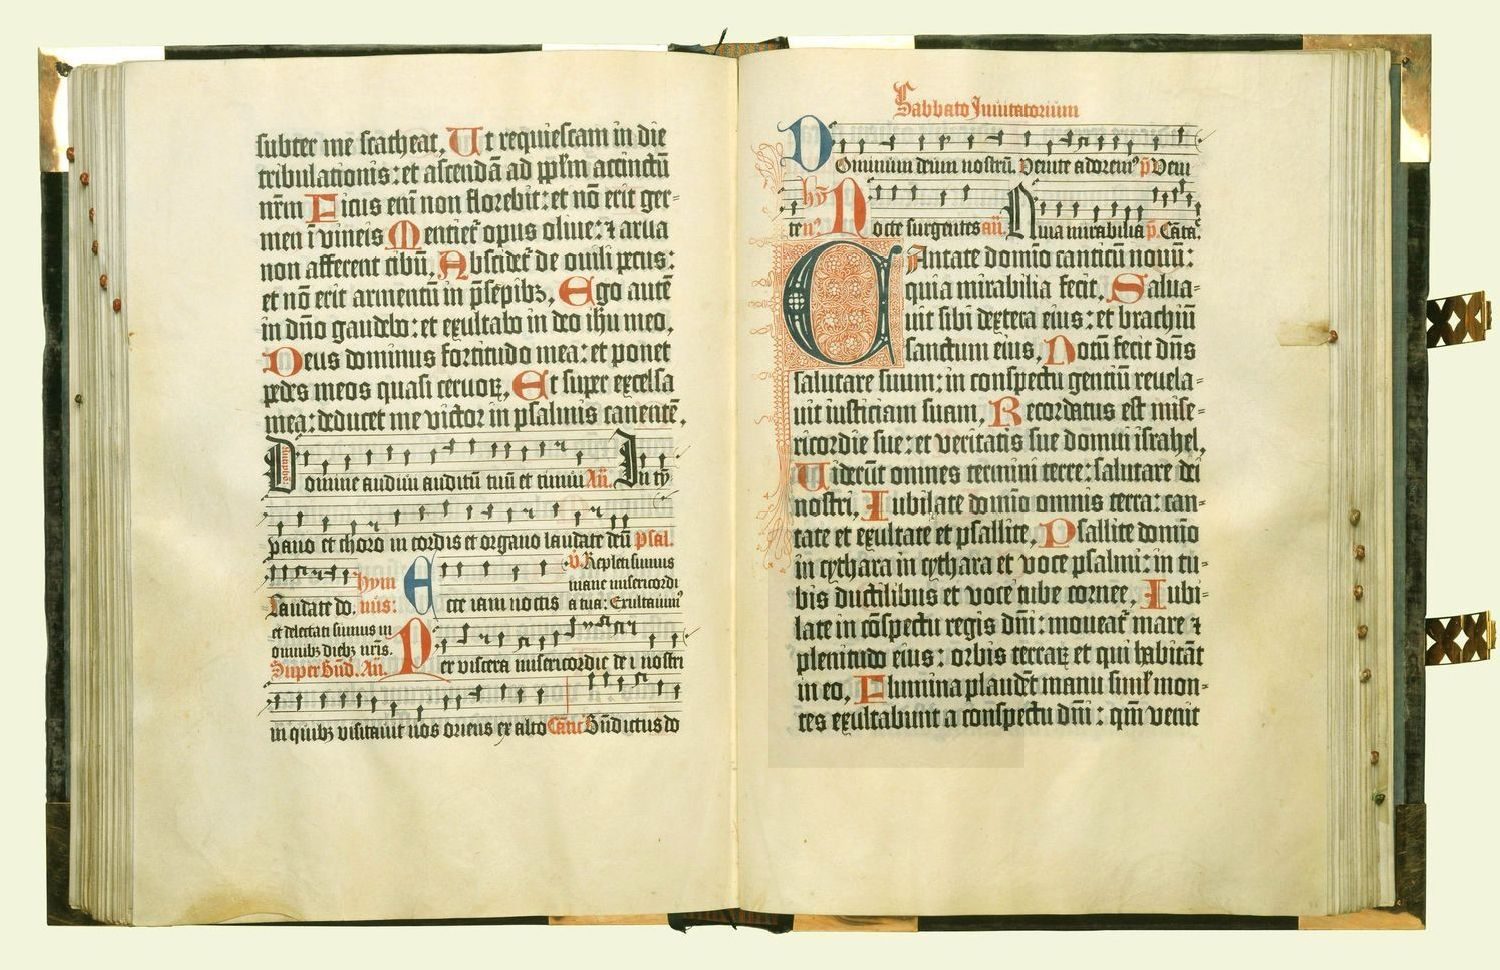 subter me scatheat. Ut requiescam in die
tribulationis: et ascendā ad pplm̄ accinctū
nr̄m Ficus eni̅ non florebit: et nō erit ger-
men ī vineis Mentiet᷑ opus oliue: ⁊ arua
non afferent cibū. Abscidet᷑ de ouili pecus:
et nō erit armentū in p̄sepibꝫ. Ego autē
in dn̄o gaudebo: et exultabo in deo ih̄u meo.
Deus dominus fortitudo mea: et ponet
pedes meos quasi ceruoꝝ. Et super excelsa
mea: deducet me victor in psalmis canentē.
Domine audiui auditū tuū et timui Añ. In ty
pano et choro in cordis et organo laudate deū Psal.
Laudate do. hymnus: Ecce iam noctis v̄. Repleti sumus
mane misericordi
a tua: Exultauim᷒
et delectati sumus in
omnibꝫ diebꝫ nr̄is.
Super bn̄d. Añ. Per viscera misericordie dei nostri
in quibꝫ visitauit nos oriens ex alto Cantic̄ Bn̄dictus do
Sabbato Inuitatorium
Dominum deum nostrū. Venite adorem᷒ p̄ Veni
te. hy᷒ Nocte surgentes añ. Quia mirabilia p̄. Cāta.
CAntate domīo canticū nouū:
quia mirabilia fecit. Salua-
uit sibi dextera eius: et brachiū
sanctum eius. Notū fecit dn̄s
salutare suum: in conspectu gentiū reuela-
uit iusticiam suam. Recordatus est mise-
ricordie sue: et veritatis sue domui israhel.
Viderūt omnes termini terre: salutare dei
nostri. Iubilate domīo omnis terra: can-
tate et exultate et psallite. Psallite domīo
in cythara in cythara et voce psalmi: in tu-
bis ductilibus et voce tube cornee. Iubi-
late in cōspectu regis dn̄i: moueat᷑ mare ⁊
plenitudo eius: orbis terraꝝ et qui habitāt
in eo. Flumina plaudēt manu siml̄ mon-
tes exultabunt a conspectu dn̄i: qm̄ venit